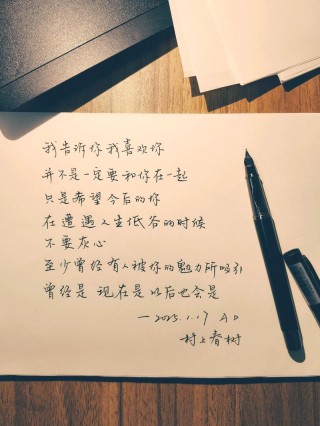 我告诉你我喜欢你
并不是一定要和你在一起
只是希望今后的你
在遭遇人生低谷的时候
不要灰心
至少曾经有人被你的魅力所吸引
曾经是 现在是 以后也会是
一2025.1.17
村上春树